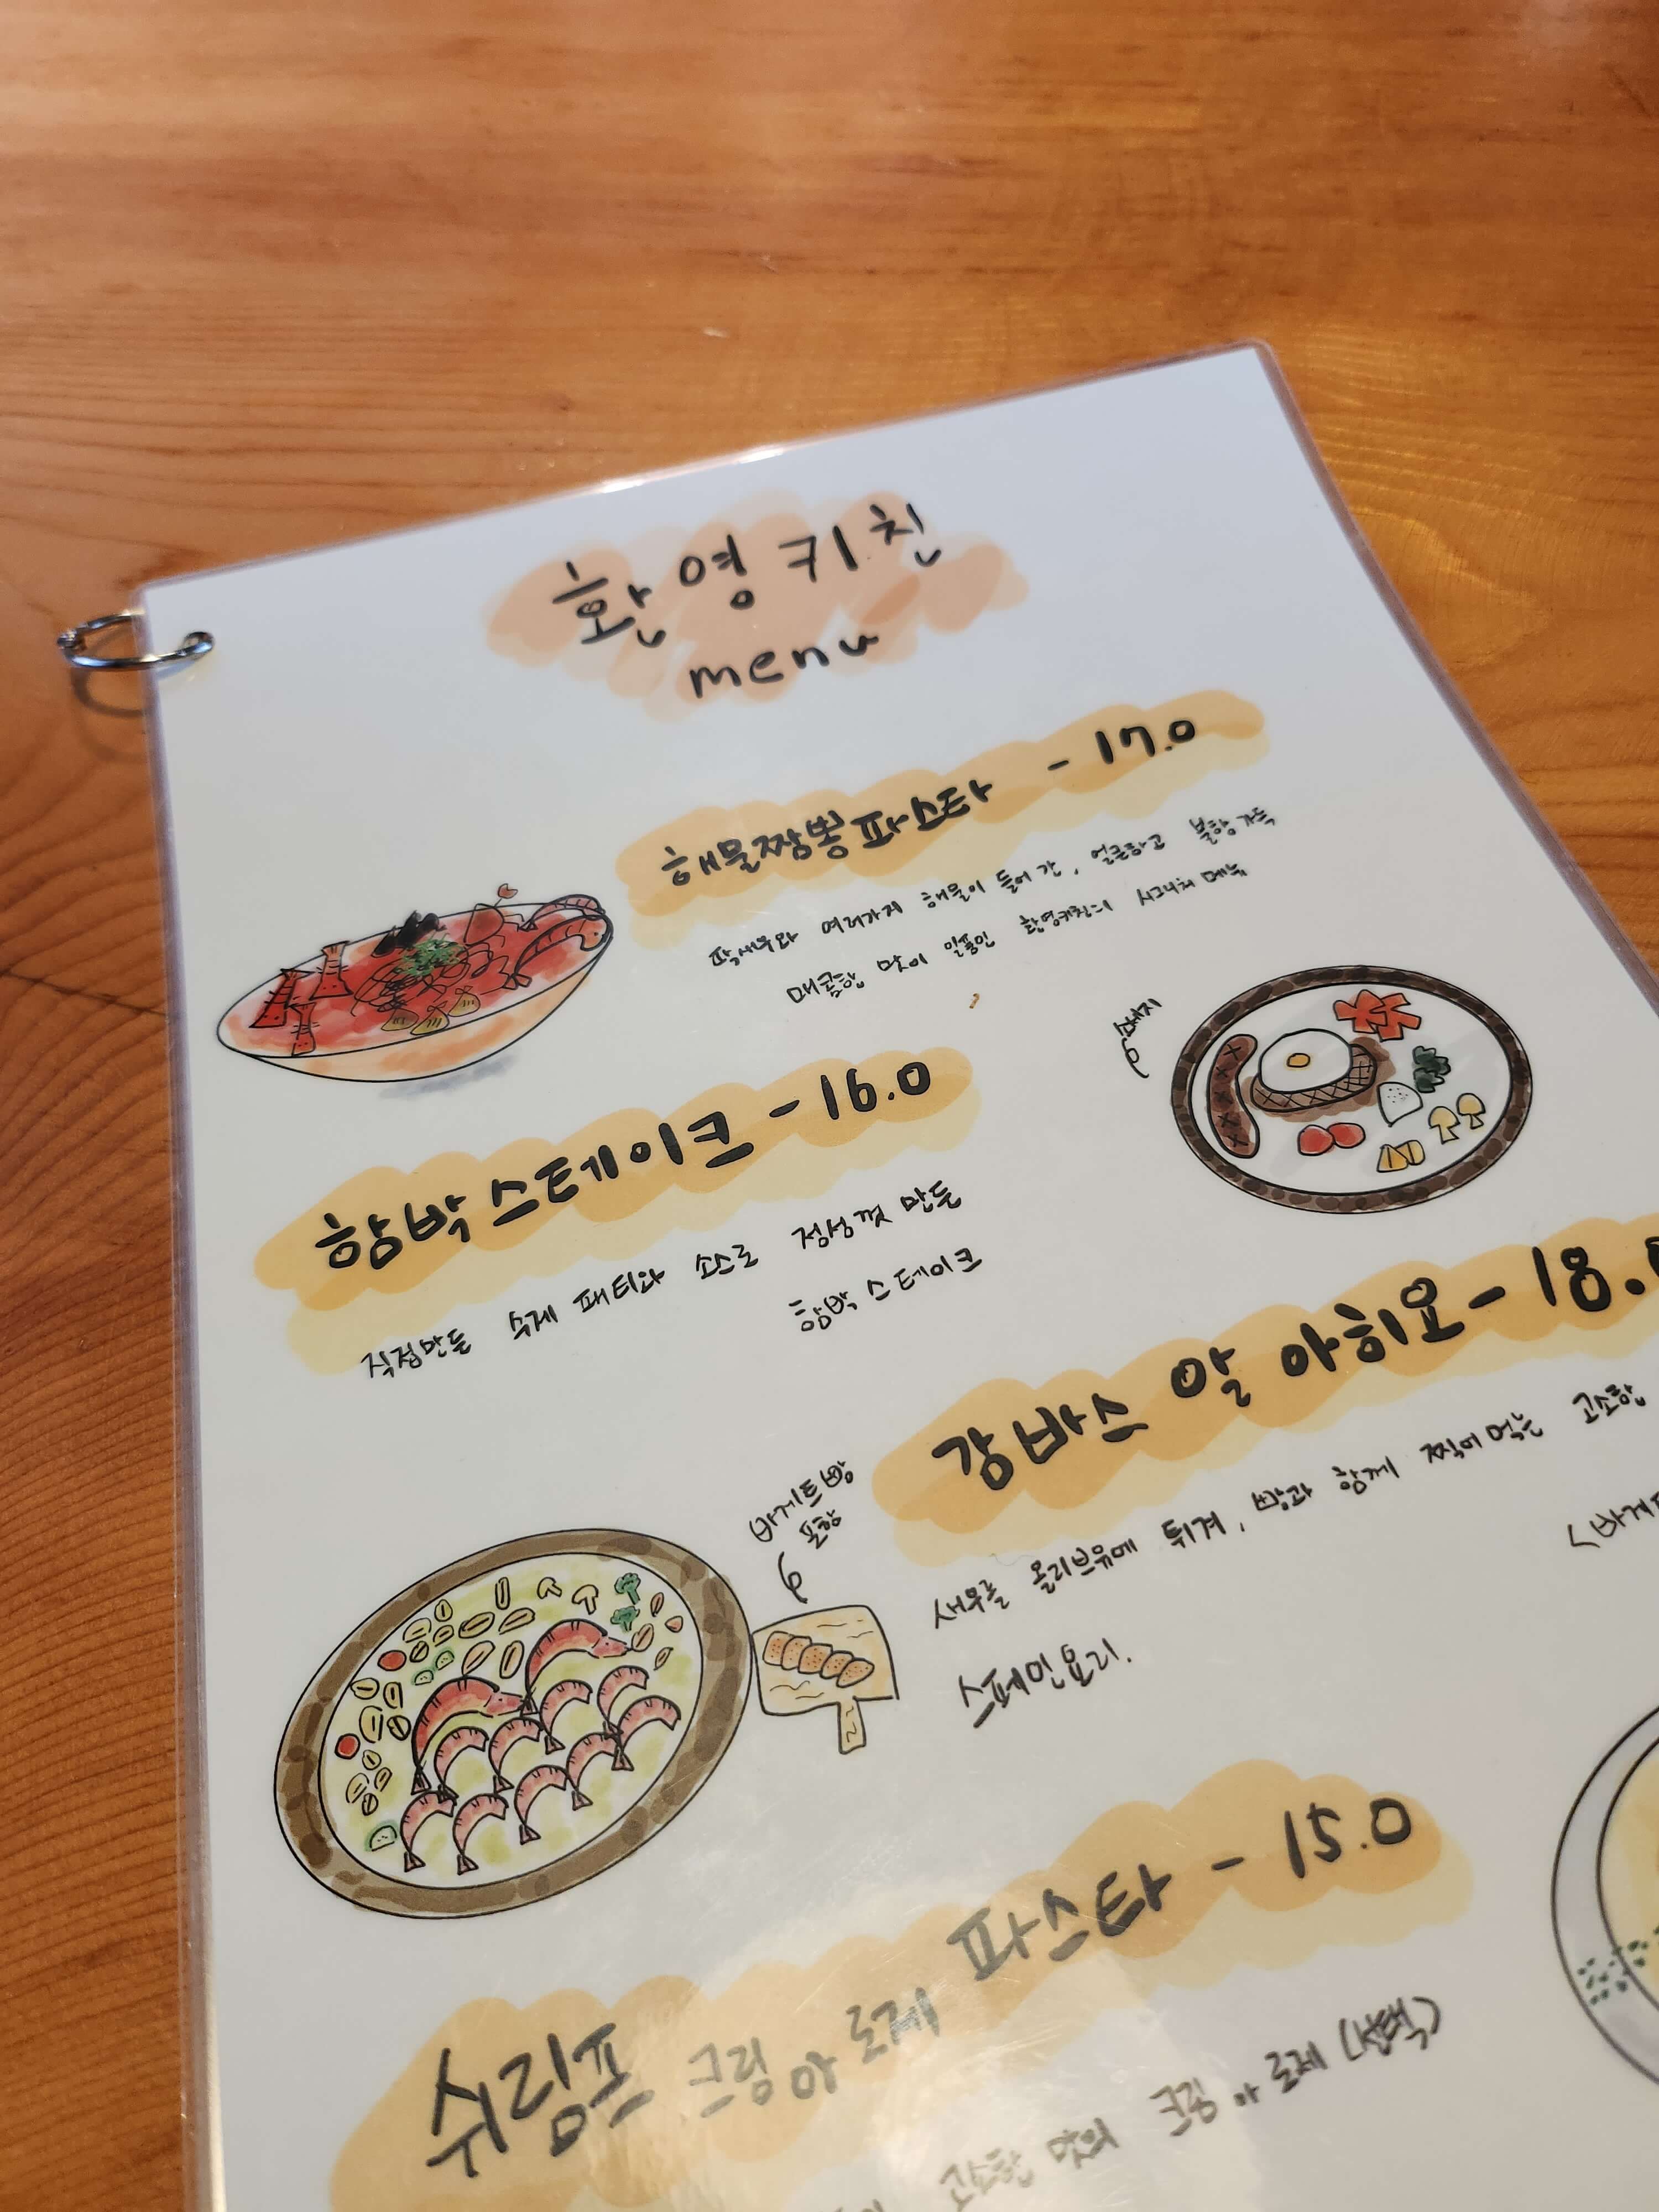 환영키친
menu
해물짬뽕파스타 - 17.0
딱새우와 여러가지 해물이 들어간, 얼큰하고 불향가득
매콤한 맛이 일품인 환영키친의 시그니처 메뉴
소세지
함박스테이크 - 16.0
직접만든 수제 패티와 소스로 정성껏 만든
함박스테이크
감바스 알 아히요 - 18.
바게트빵
포함
새우를 올리브유에 튀겨, 빵과 함께 찍어먹는 고소한
<바게
스페인요리.
쉬림프 크림 or 로제 파스타 - 15.0
고소한 맛의 크림 or 로제 (선택)